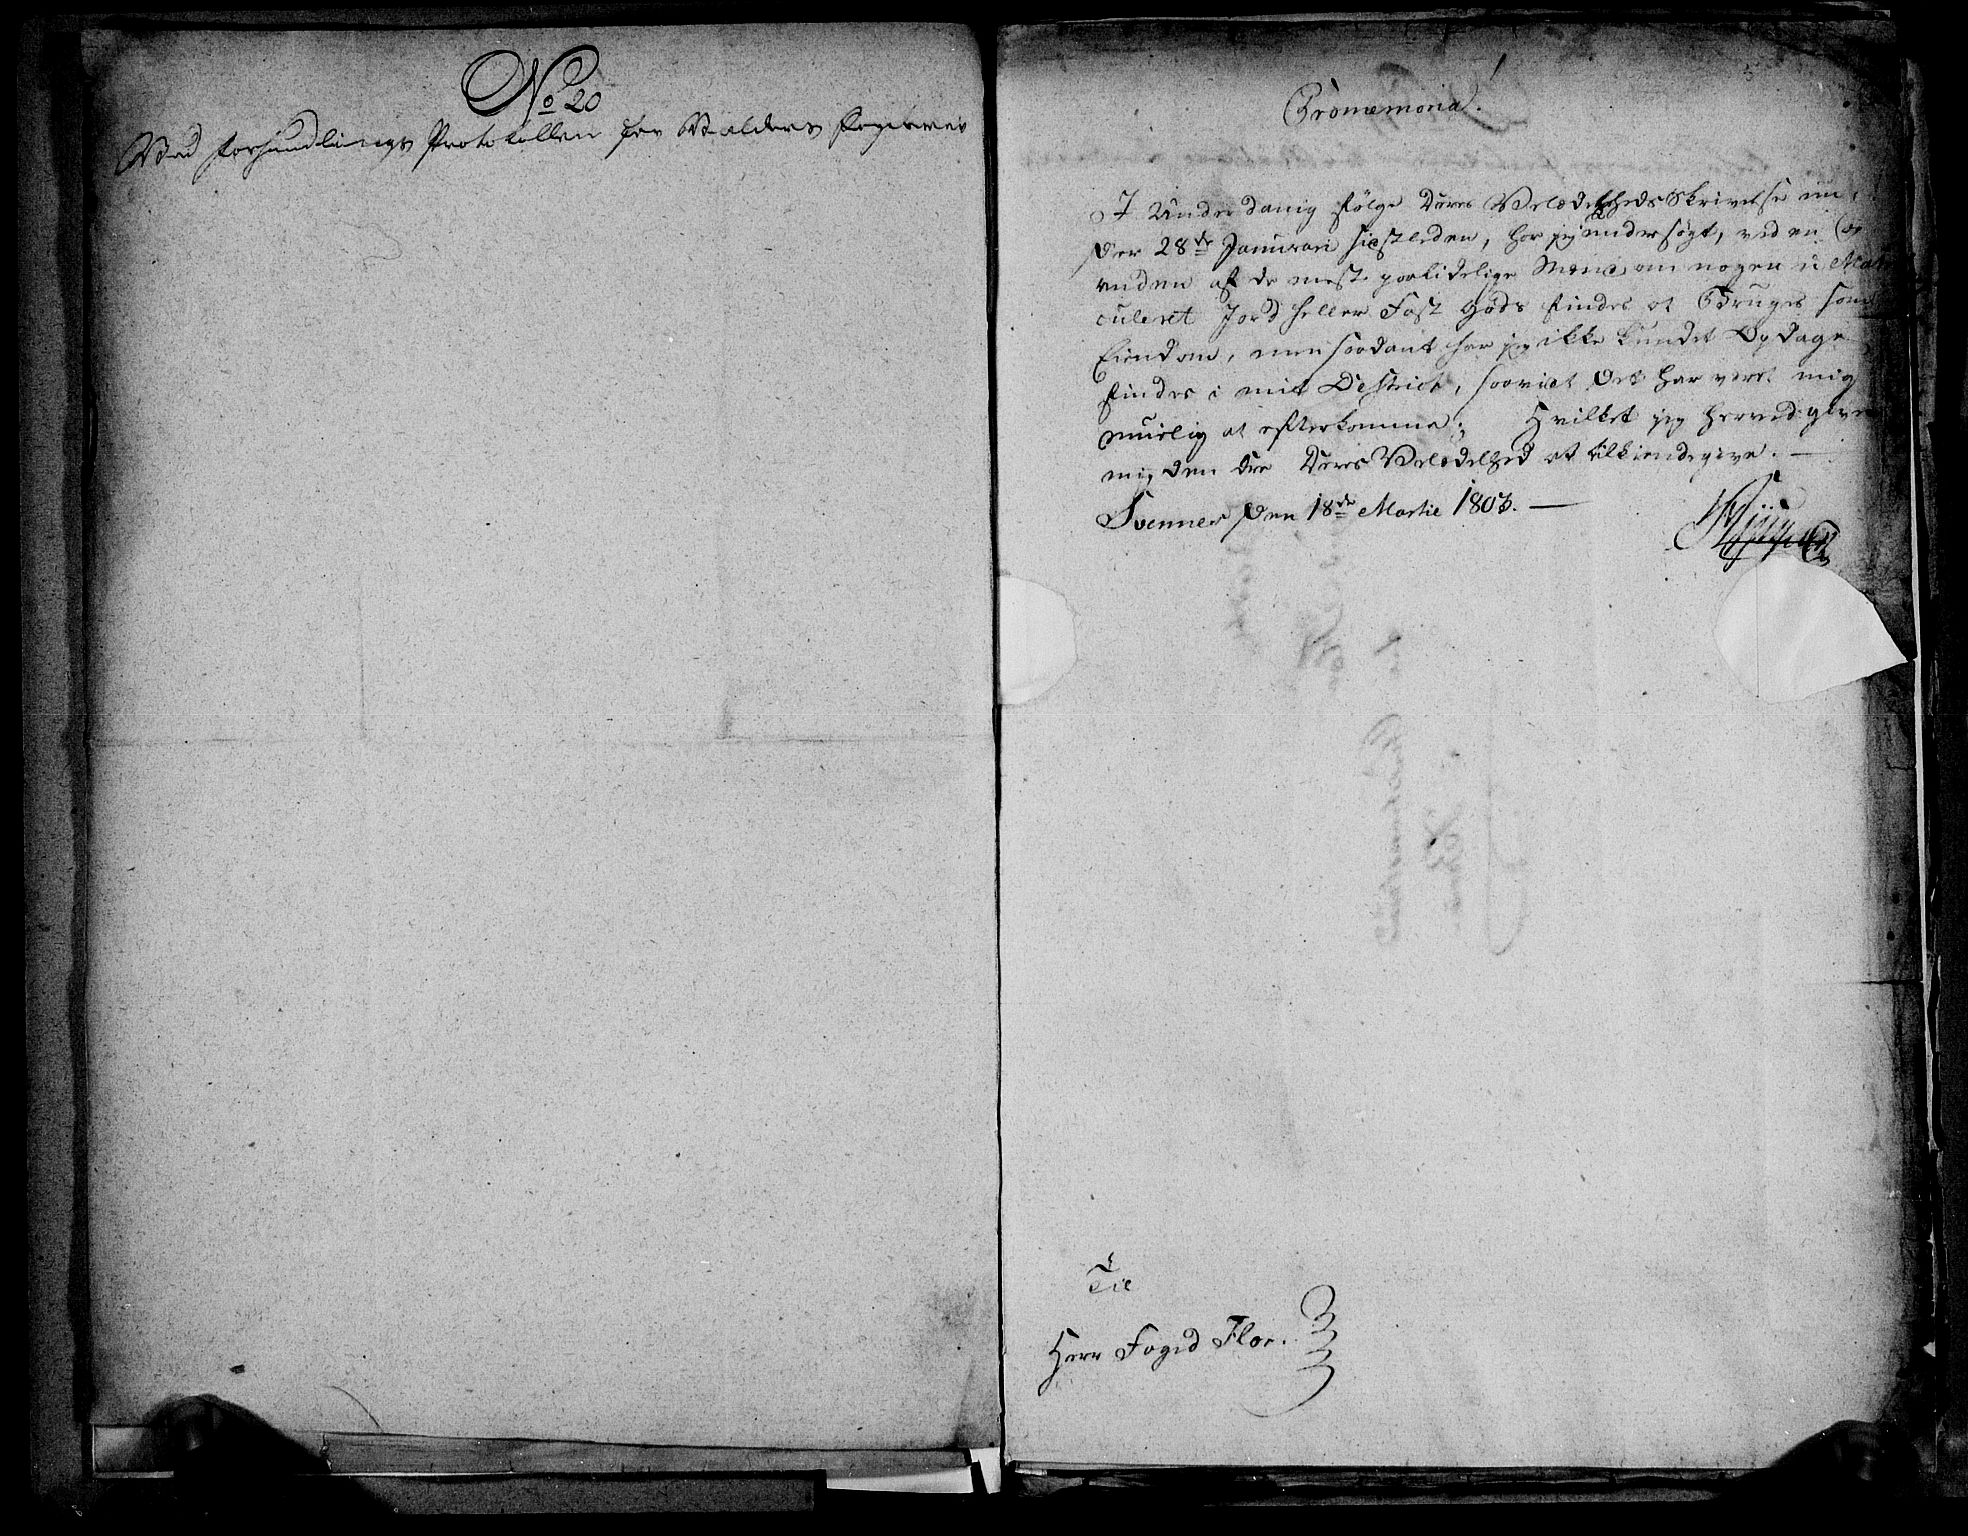 No 20
Ved Forhandlings Protokollen for Walders Fogderie
Promemoria.
I Underdanig følge Deres Velædelheds Skrivelse un,
der 28de Januari sidstleden, har jeg undersøgt, ved en
af de mest paalidelige Mænd, om nogen u Mat
culeret Jord heller Fast Gods findes at Bruges som
Eiendom, men saadant har jeg ikke kundet Opdage
findes i mit Destrict, saavidt det har været mig
muelig at efterkomme; Hvilket jeg herved give
mig den Ære Deres Velædelhed at tilkiendegive. —
Svennes den 18de Martie 1803. —
Til
Herr Foged Flor.